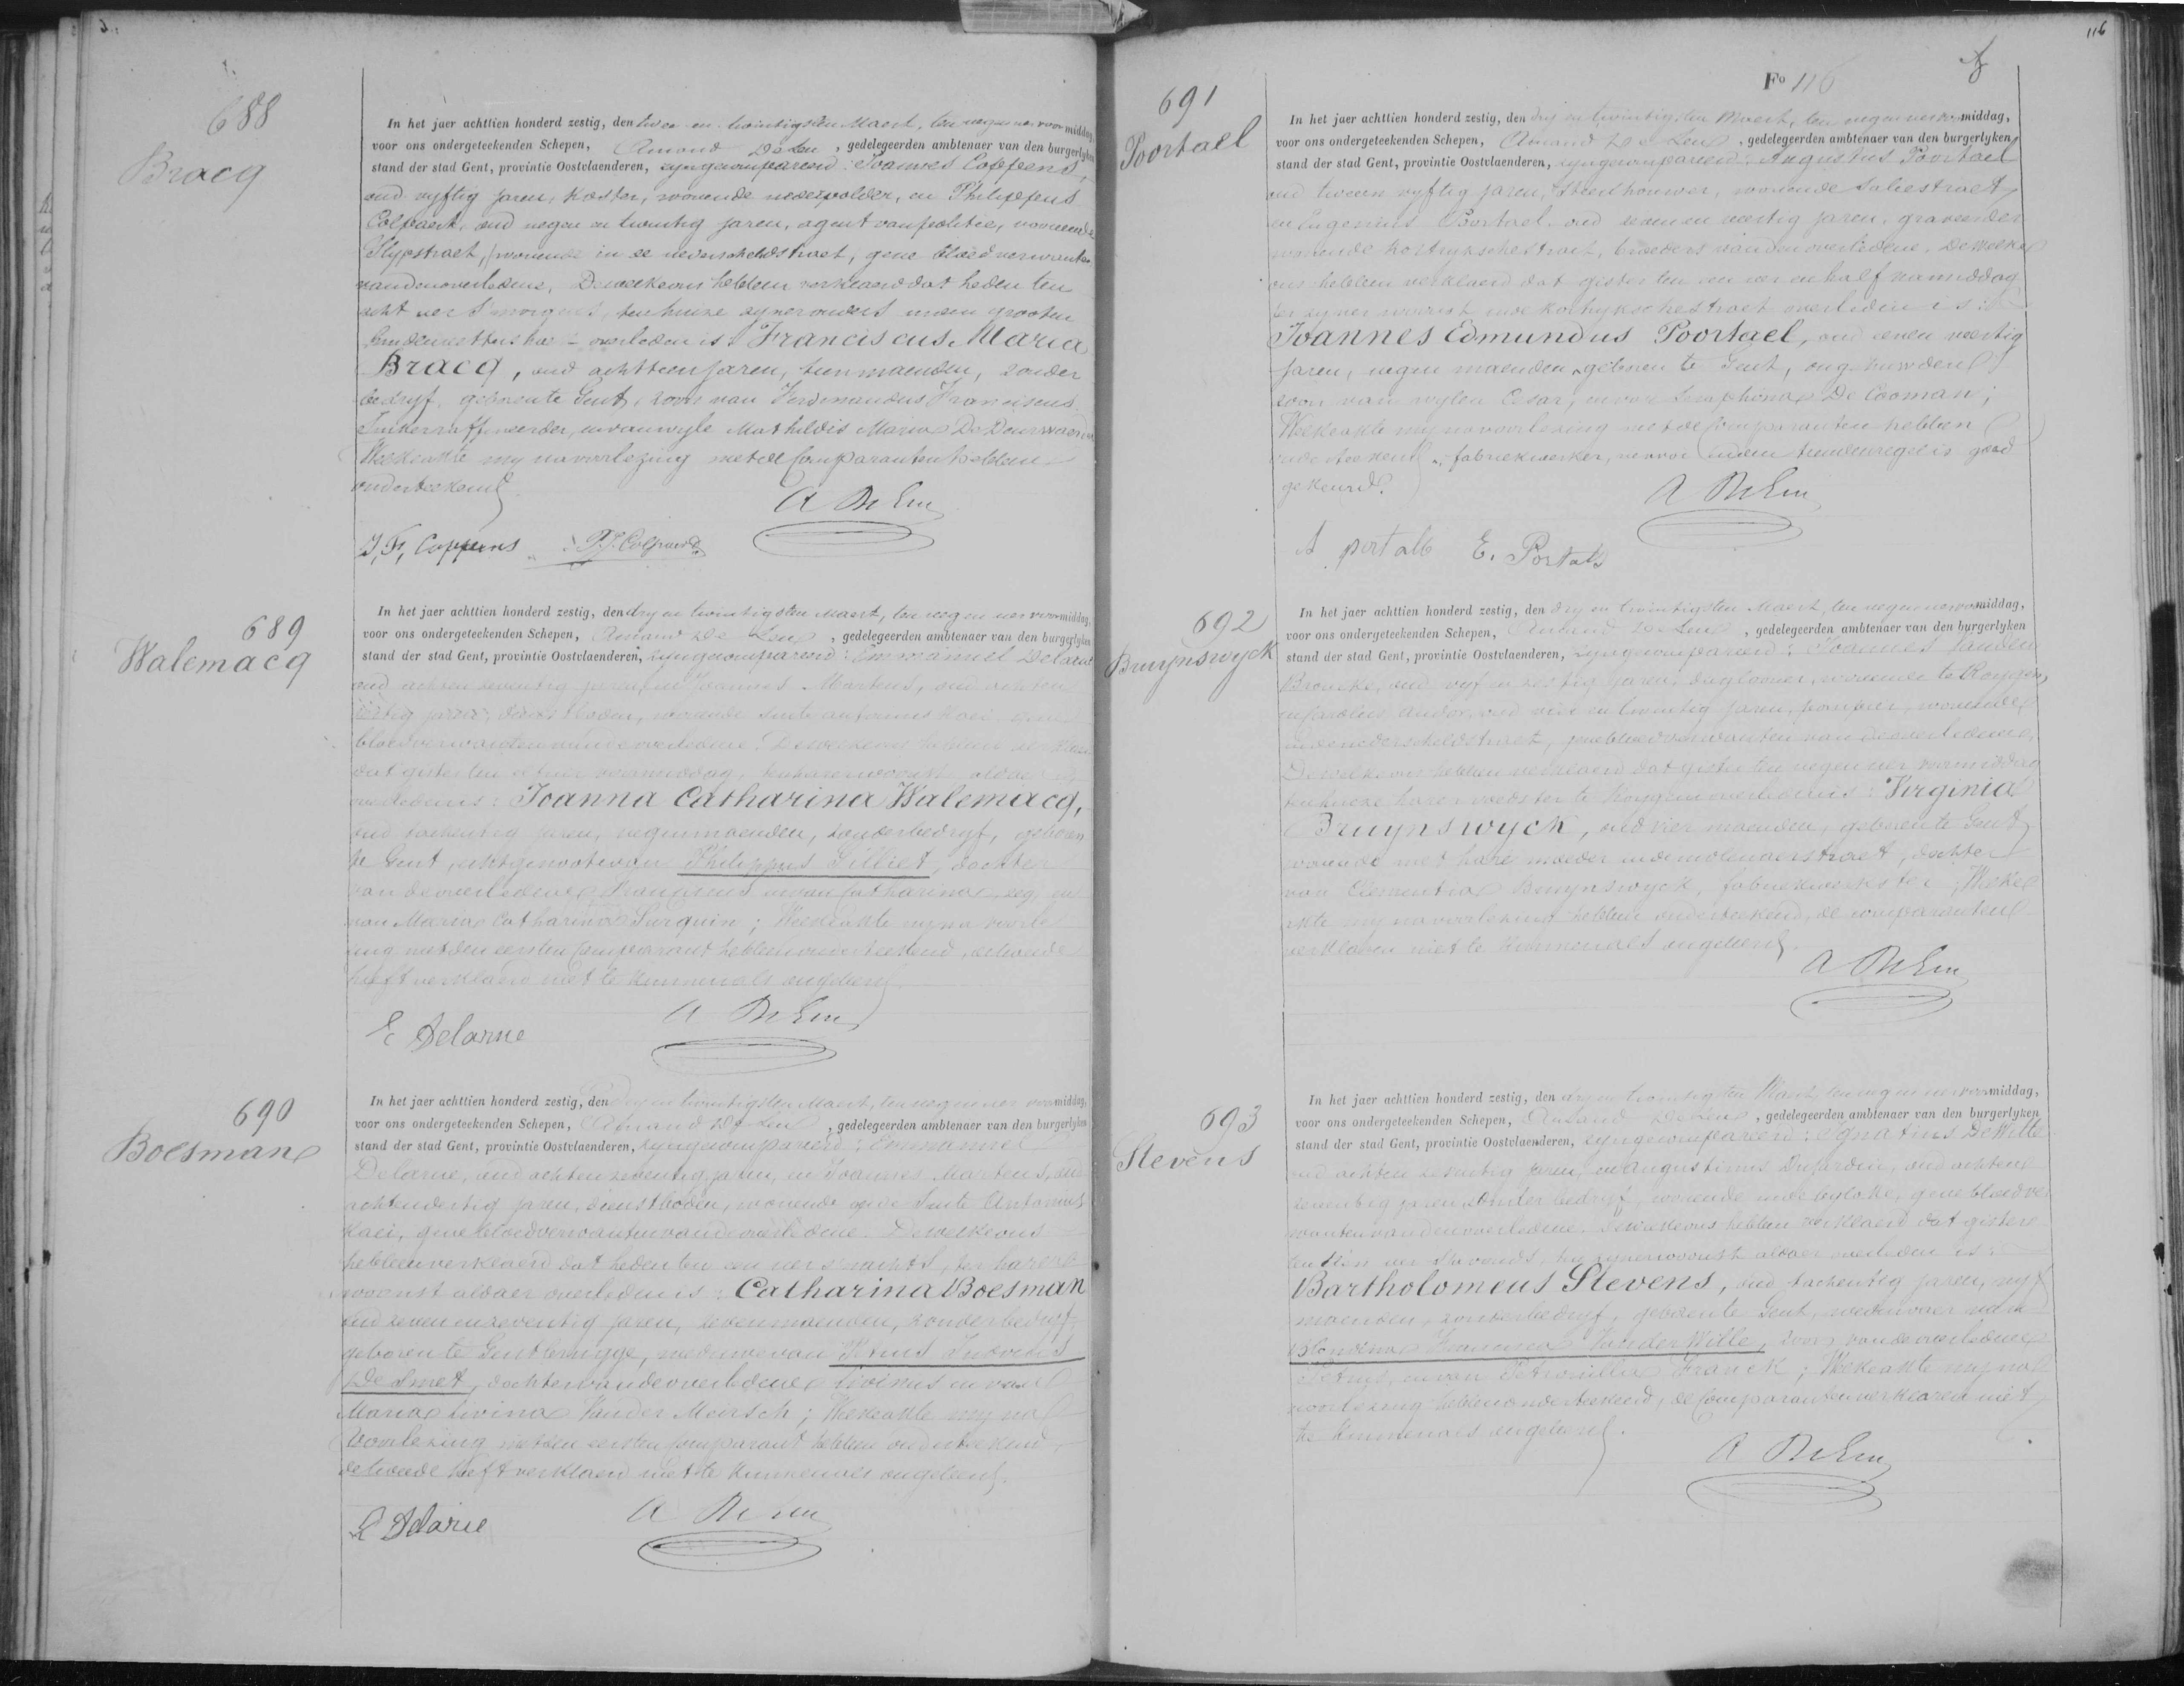 688
Bracq
In het jaer achttien honderd zestig, den twee en twintigsten Maert, ten negen uer voormiddag,
voor ons ondergeteekenden Schepen, Amand De Leu, gedelegeerden ambtenaer van den burgerlyken
stand der stad Gent, provintie Oostvlaenderen, zyn gecompareerd: Joannes Coppens,
oud vyftig jaren, koster, wonende nederpolder, en Philippus
Colpaert, oud negen en twintig jaren, agent van politie, wonende
Slypstraet, wonende in de nederscheldstraet, gene bloedverwanten
van den overledene. Dewelke ons hebben verklaerd dat heden ten
acht uer 's morgens, ten huize zyner ouders
overleden is: Franciscus Maria
Bracq, oud achttien jaren, tien maenden, zonder
bedryf, geboren te Gent, zoon van Ferdinandus Franciscus
Suikerraffineerder, en van wyle Mathildis Maria De Deurwaerder
Welke akte wy na voorlezing met de Comparanten hebben
onderteekend
A De Leu
J, F, Coppens P. J. Colpaert
689
Walemacq
In het jaer achttien honderd zestig, den dry en twintigsten Maert, ten negen uer voormiddag,
voor ons ondergeteekenden Schepen, Amand De Leu, gedelegeerden ambtenaer van den burgerlyken
stand der stad Gent, provintie Oostvlaenderen, zyn gecompareerd: Emmanuel Delarue
oud acht en zeventig jaren, en Joannes Martens, oud acht en
dertig jaren, dienstboden, wonende Sinte antonius Kaei, gene
bloedverwanten van de overledene. Dewelke ons hebben verklaerd
dat gister ten elf uer voormiddag, ten harer woonst aldaer
overleden is: Joanna Catharina Walemacq,
oud tachentig jaren, negen maenden, zonder bedryf, geboren
te Gent, echtgenoote van Philippus Gilliet, dochter
van de overledene Franciscus en van Catharina
van Maria Catharina Surquin; Welke akte wy na voorle
zing met den eersten Comparant hebben onderteekend, de tweede
heeft verklaerd niet te kunnen als ongeleerd.
E Delarue A De Leu
690
Boesman
In het jaer achttien honderd zestig, den dry en twintigsten Maert, ten negen uer voormiddag,
voor ons ondergeteekenden Schepen, Amand De Leu, gedelegeerden ambtenaer van den burgerlyken
stand der stad Gent, provintie Oostvlaenderen, zyn gecompareerd: Emmanuel
Delarue, oud acht en zeventig jaren, en Joannes Martens, oud
acht en dertig jaren, dienstboden, wonende op de Sinte Antonius
Kaei, gene bloedverwanten van de overledene. Dewelke ons
hebben verklaerd dat heden ten een uer 's nachts, ter harer
woonst aldaer overleden is: Catharina Boesman
oud zeven en zeventig jaren, zeven maenden, zonder bedryf,
geboren te Gentbrugge, weduwe van Petrus Ludovicus
De Smet, dochter van de overledene Livinus en van
Maria Livina Vander Meirsch; Welke akte wy na
Voorlezing met den eersten Comparant hebben onderteekend,
de tweede heeft verklaerd niet te kunnen als ongeleerd.
E Delarue A De Leu
116
Fo 116
691
Poortael
In het jaer achttien honderd zestig, den dry en twintigsten Maert, ten negen uer voormiddag,
voor ons ondergeteekenden Schepen, Amand De Leu, gedelegeerden ambtenaer van den burgerlyken
stand der stad Gent, provintie Oostvlaenderen, zyn gecompareerd: Augustus Poortael
oud twee en vyftig jaren, steenhouwer, wonende Saliestraet
en Eugenius Poortael, oud zeven en veertig jaren, graveerder
wonende Kortryksche straet, broeders van den overledene. Dewelke
ons hebben verklaerd dat gister ten een uer en half namiddag
ter zyner woonst in de Kortryksche straet overleden is:
Joannes Edmundus Poortael, oud een en veertig
jaren, negen maenden, geboren te Gent, ongehuwd
zoon van wylen Cesar, en van Seraphina De Cooman;
Welke akte wy na voorlezing met de Comparanten hebben
onderteekend. fabriekwerker, in den tienden regel is goed
gekeurd.
A De Leu
A portals E. Portals
692
Bruynswyck
In het jaer achttien honderd zestig, den dry en twintigsten Maert, ten negen uer voormiddag,
voor ons ondergeteekenden Schepen, Amand De Leu, gedelegeerden ambtenaer van den burgerlyken
stand der stad Gent, provintie Oostvlaenderen, zyn gecompareerd: Joannes Vanden
Broucke, oud vyf en zestig jaren, daglooner, wonende te Royghem,
en Carolus Andor, oud vier en twintig jaren, pompier, wonende
in de nederscheldstraet, gene bloedverwanten van de overledene.
Dewelke ons hebben verklaerd dat gister ten negen uer voormiddag
ten huize harer voedster te Royghem overleden is: Virginia
Bruynswyck, oud vier maenden, geboren te Gent,
wonende met hare moeder in de molenaerstraet, dochter
van Clementia Bruynswyck, fabriekwerkster; Welke
akte wy na voorlezing hebben onderteekend, de comparanten
verklaren niet te kunnen als ongeleerd.
A De Leu
693
Stevens
In het jaer achttien honderd zestig, den dry en twintigsten Maert, ten negen uer voormiddag,
voor ons ondergeteekenden Schepen, Amand De Leu, gedelegeerden ambtenaer van den burgerlyken
stand der stad Gent, provintie Oostvlaenderen, zyn gecompareerd: Ignatius De Witte
oud acht en zeventig jaren, en Augustinus Dujardin, oud acht en
zeventig jaren, zonder bedryf, wonende in de byloke, gene bloedver
wanten van den overledene. Dewelke ons hebben verklaerd dat gister
ten tien uer 's avonds, ter zyner woonst aldaer overleden is:
Bartholomeus Stevens, oud tachentig jaren, vyf
maenden, zonder bedryf, geboren te Gent, weduwaer van
Blandina Francisca Vander Wille, zoon van de overledene
Petrus, en van Petronilla Franck; Welke akte wy na
voorlezing hebben onderteekend, de Comparanten verklaren niet
te kunnen als ongeleerd.
A De Leu